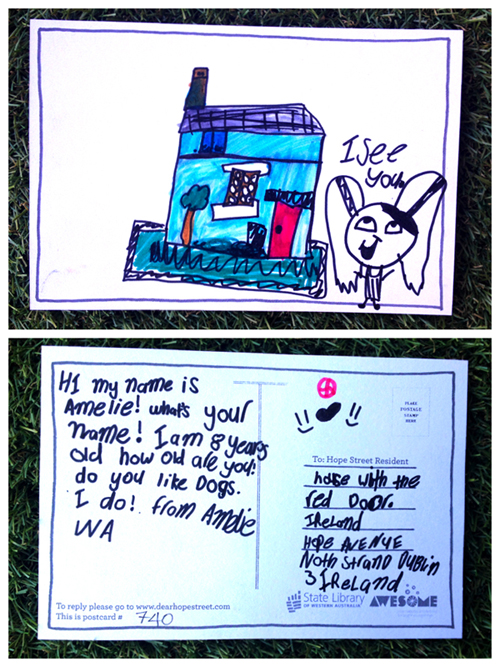 I see
you.
HI my name is
Amelie! what's your
name! I am 8 years
old how old are you.
do you like Dogs.
I do! from Amelie
WA
PLACE
POSTAGE
STAMP
HERE
!! !!
To: Hope Street Resident
house with the
red Door.
IReland
HOPE AVENUE
Noth strand Dublin
3 IReland
State Library
OF WESTERN AUSTRALIA
AWESOME
To reply please go to www.dearhopestreet.com
This is postcard # 740